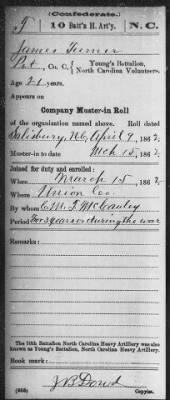 (Confederate.)
T 10 Batt'n H. Art'y. N.C.
James Turner
Pvt, Co. C, Young's Battalion, North Carolina Volunteers.
Age 21 years.
Appears on
Company Muster-in Roll
of the organization named above. Roll dated
Salisbury, N.C., April 9, 1862.
Muster-in to date Mch 15, 1862.
Joined for duty and enrolled:
When March 15, 1862.
Where Union Co.
By whom C. M. T. McCauley
Period For 3 years or during the war
Remarks:
The 10th Battalion North Carolina Heavy Artillery was also
known as Young's Battalion, North Carolina Heavy Artillery.
Book mark:
J B Dowd
Copyist.